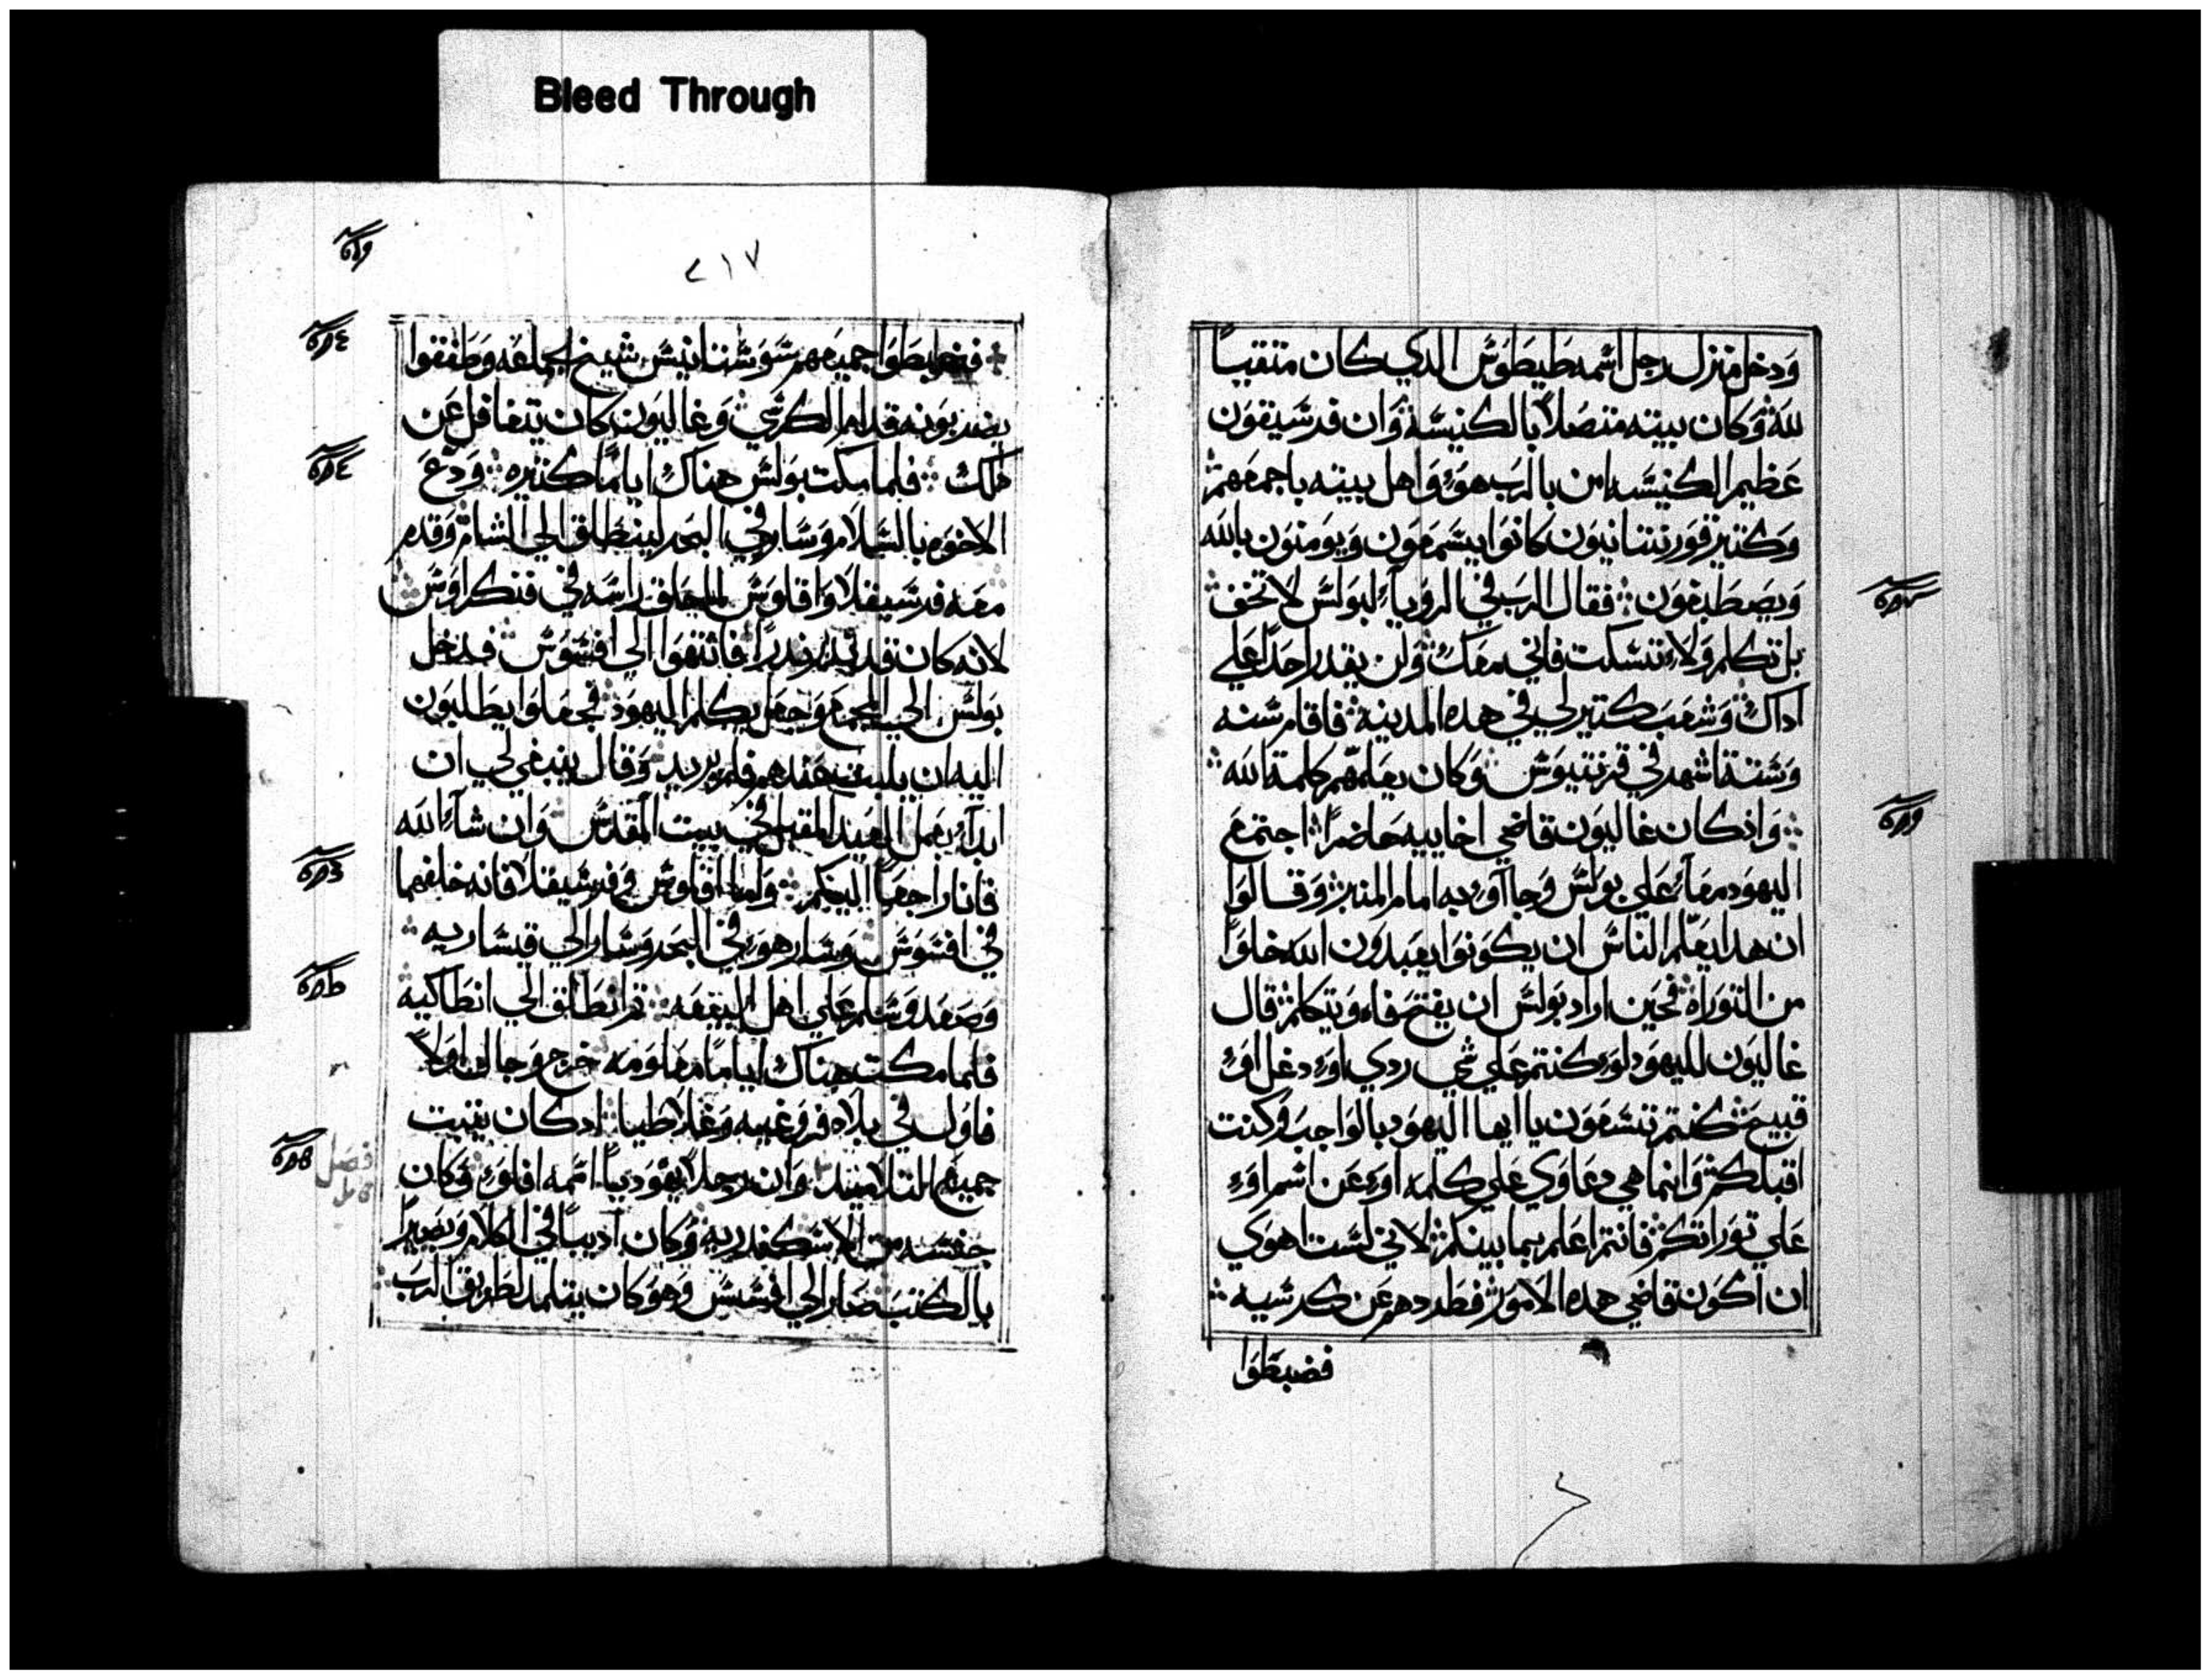 Bleed Through
ودخل منزل رجل اسمه طيطوس الدي كان متقيًا
لله وكان بيته متصلاً بالكنيسة وان قرسيقون
عظيم الكنيسه امن بالرب هو واهل بيته باجمعهم
وكتير قورنتانيون كانوا يسمعون ويومنون بالله
ويصطبغون فقال الرب في الرويا لبولس لا تخف
بل تكلم ولا تسكت فاني معك ولن يقدر احدًا علي
اداك وشعب كتير لي في هده المدينه فاقام سنه
وستة اشهر في قرنتيوس وكان يعلمهم كلمة الله
واذ كان غاليون قاضي اخاييه حاضرًا اجتمع
اليهود معًا علي بولس وجاآو به امام المنبر وقالوا
ان هدا يعلم الناس ان يكونوا يعبدون الله خلوًا
من التوراة فحين اراد بولس ان يفتح فاه ويتكلم قال
غاليون لليهود لو كنتم علي شي ردي او دغل او
قبيح كنتم تسعون يا ايها اليهود بالواجب وكنت
اقبلكم وانما هي دعاوي علي كلمه او عن اسم او
علي توراتكم فانتم اعلم بما بينكم لاني لست اهوي
ان اكون قاضي هده الامور فطردهم عن كرسيه
فضبطوا
٢١٧
فضبطوا جميعهم سوستانيس شيخ الجماعه وطفقوا
يضربونه قدام الكرسي وغاليون كان يتغافل عن
ذلك فلما مكت بولس هناك ايامًا كتيره ودع
الاخوه بالسلام وسار في البحر لينطلق الي الشام وقدم
معه فرسيقلا واقلوس لما حلق راسه في قنكراوس
لانه كان قد ندر ندرًا فانتهوا الي افسوس فدخل
بولس الي المجمع وجعل يكلم اليهود فجعلوا يطلبون
اليه ان يلبت عندهم فلم يريد وقال ينبغي لي ان
ابدآ بعمل العيد المقبل في بيت المقدس وان شآ الله
فانا راجعًا اليكم واما اقلوس وفرسيقلا فانه خلفهما
في افسوس وسار هو في البحر وسار الي قيساريه
وصعد وسلم علي اهل البيعه تم انطلق الي انطاكية
فلما مكت هناك اياما معلومه خرج وجال اولاً
فاول في بلاد فروغيه وغلاطيا ادكان يتبت
جميع التلاميد وان رجلا يهوديًا اسمه افلو وكان
جنسه من الاسكندريه وكان اديبًا في الكلام وبصيرًا
بالكتب صار الي افسس وهو كان يتلمد لطريق الرب
فصل